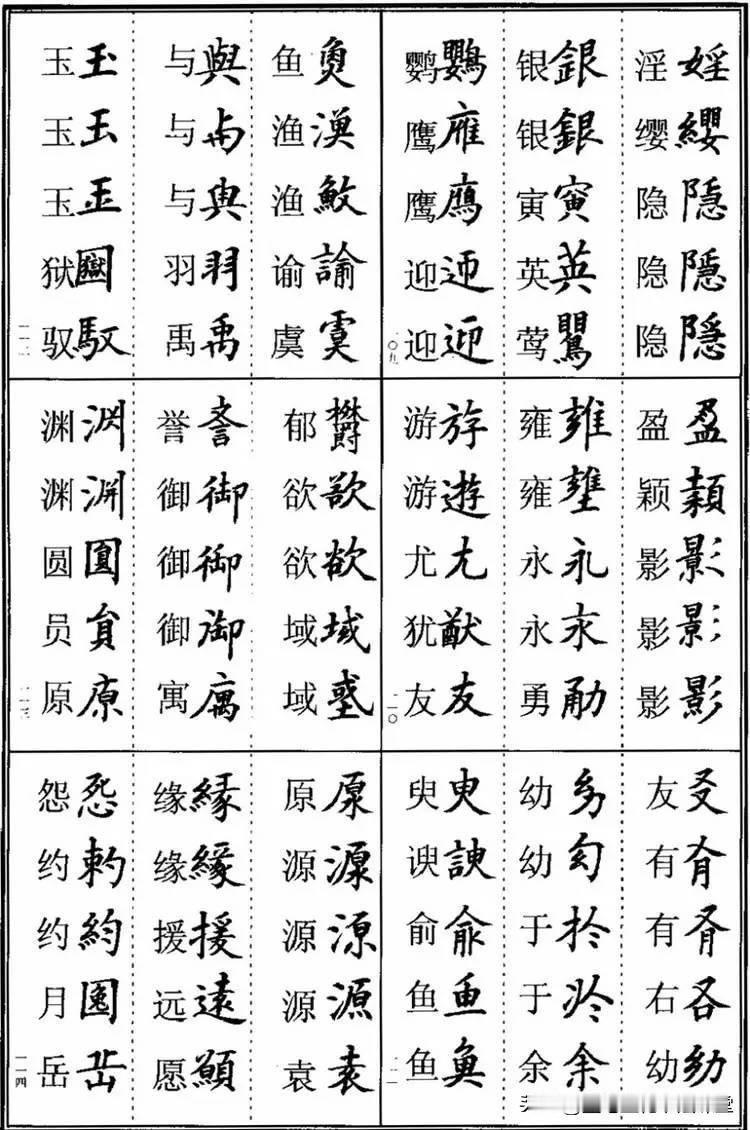 淫婬 缨纓 隐隐 隐隱 隐隠
银銀 银銀 寅寅 英英 莺鷪
鹦鸚 鹰䧹 鹰鷹 迎迊 迎迎
一〇九
盈盈 颖頴 影影 影影 影影
雍雍 雍壅 永永 永永 勇勈
游斿 游遊 尤尤 犹猷 友友
一一〇
友叐 有有 有有 右右 幼幼
幼 幼 于扵 于扵 余余
臾臾 谀諛 俞俞 鱼魚 鱼魚
一一一
鱼魚 渔漁 渔䱷 谕諭 虞虞
与與 与与 与與 羽羽 禹禹
玉玉 玉玉 玉玉 狱 驭馭
一一二
郁欝 欲欲 欲欲 域域 域
誉誉 御御 御御 御御 寓庽
渊渕 渊渊 圆圓 员員 原原
一一三
原原 源源 源源 源源 袁袁
缘縁 缘緣 援援 远遠 愿願
怨怨 约 约約 月 岳岳
一一四